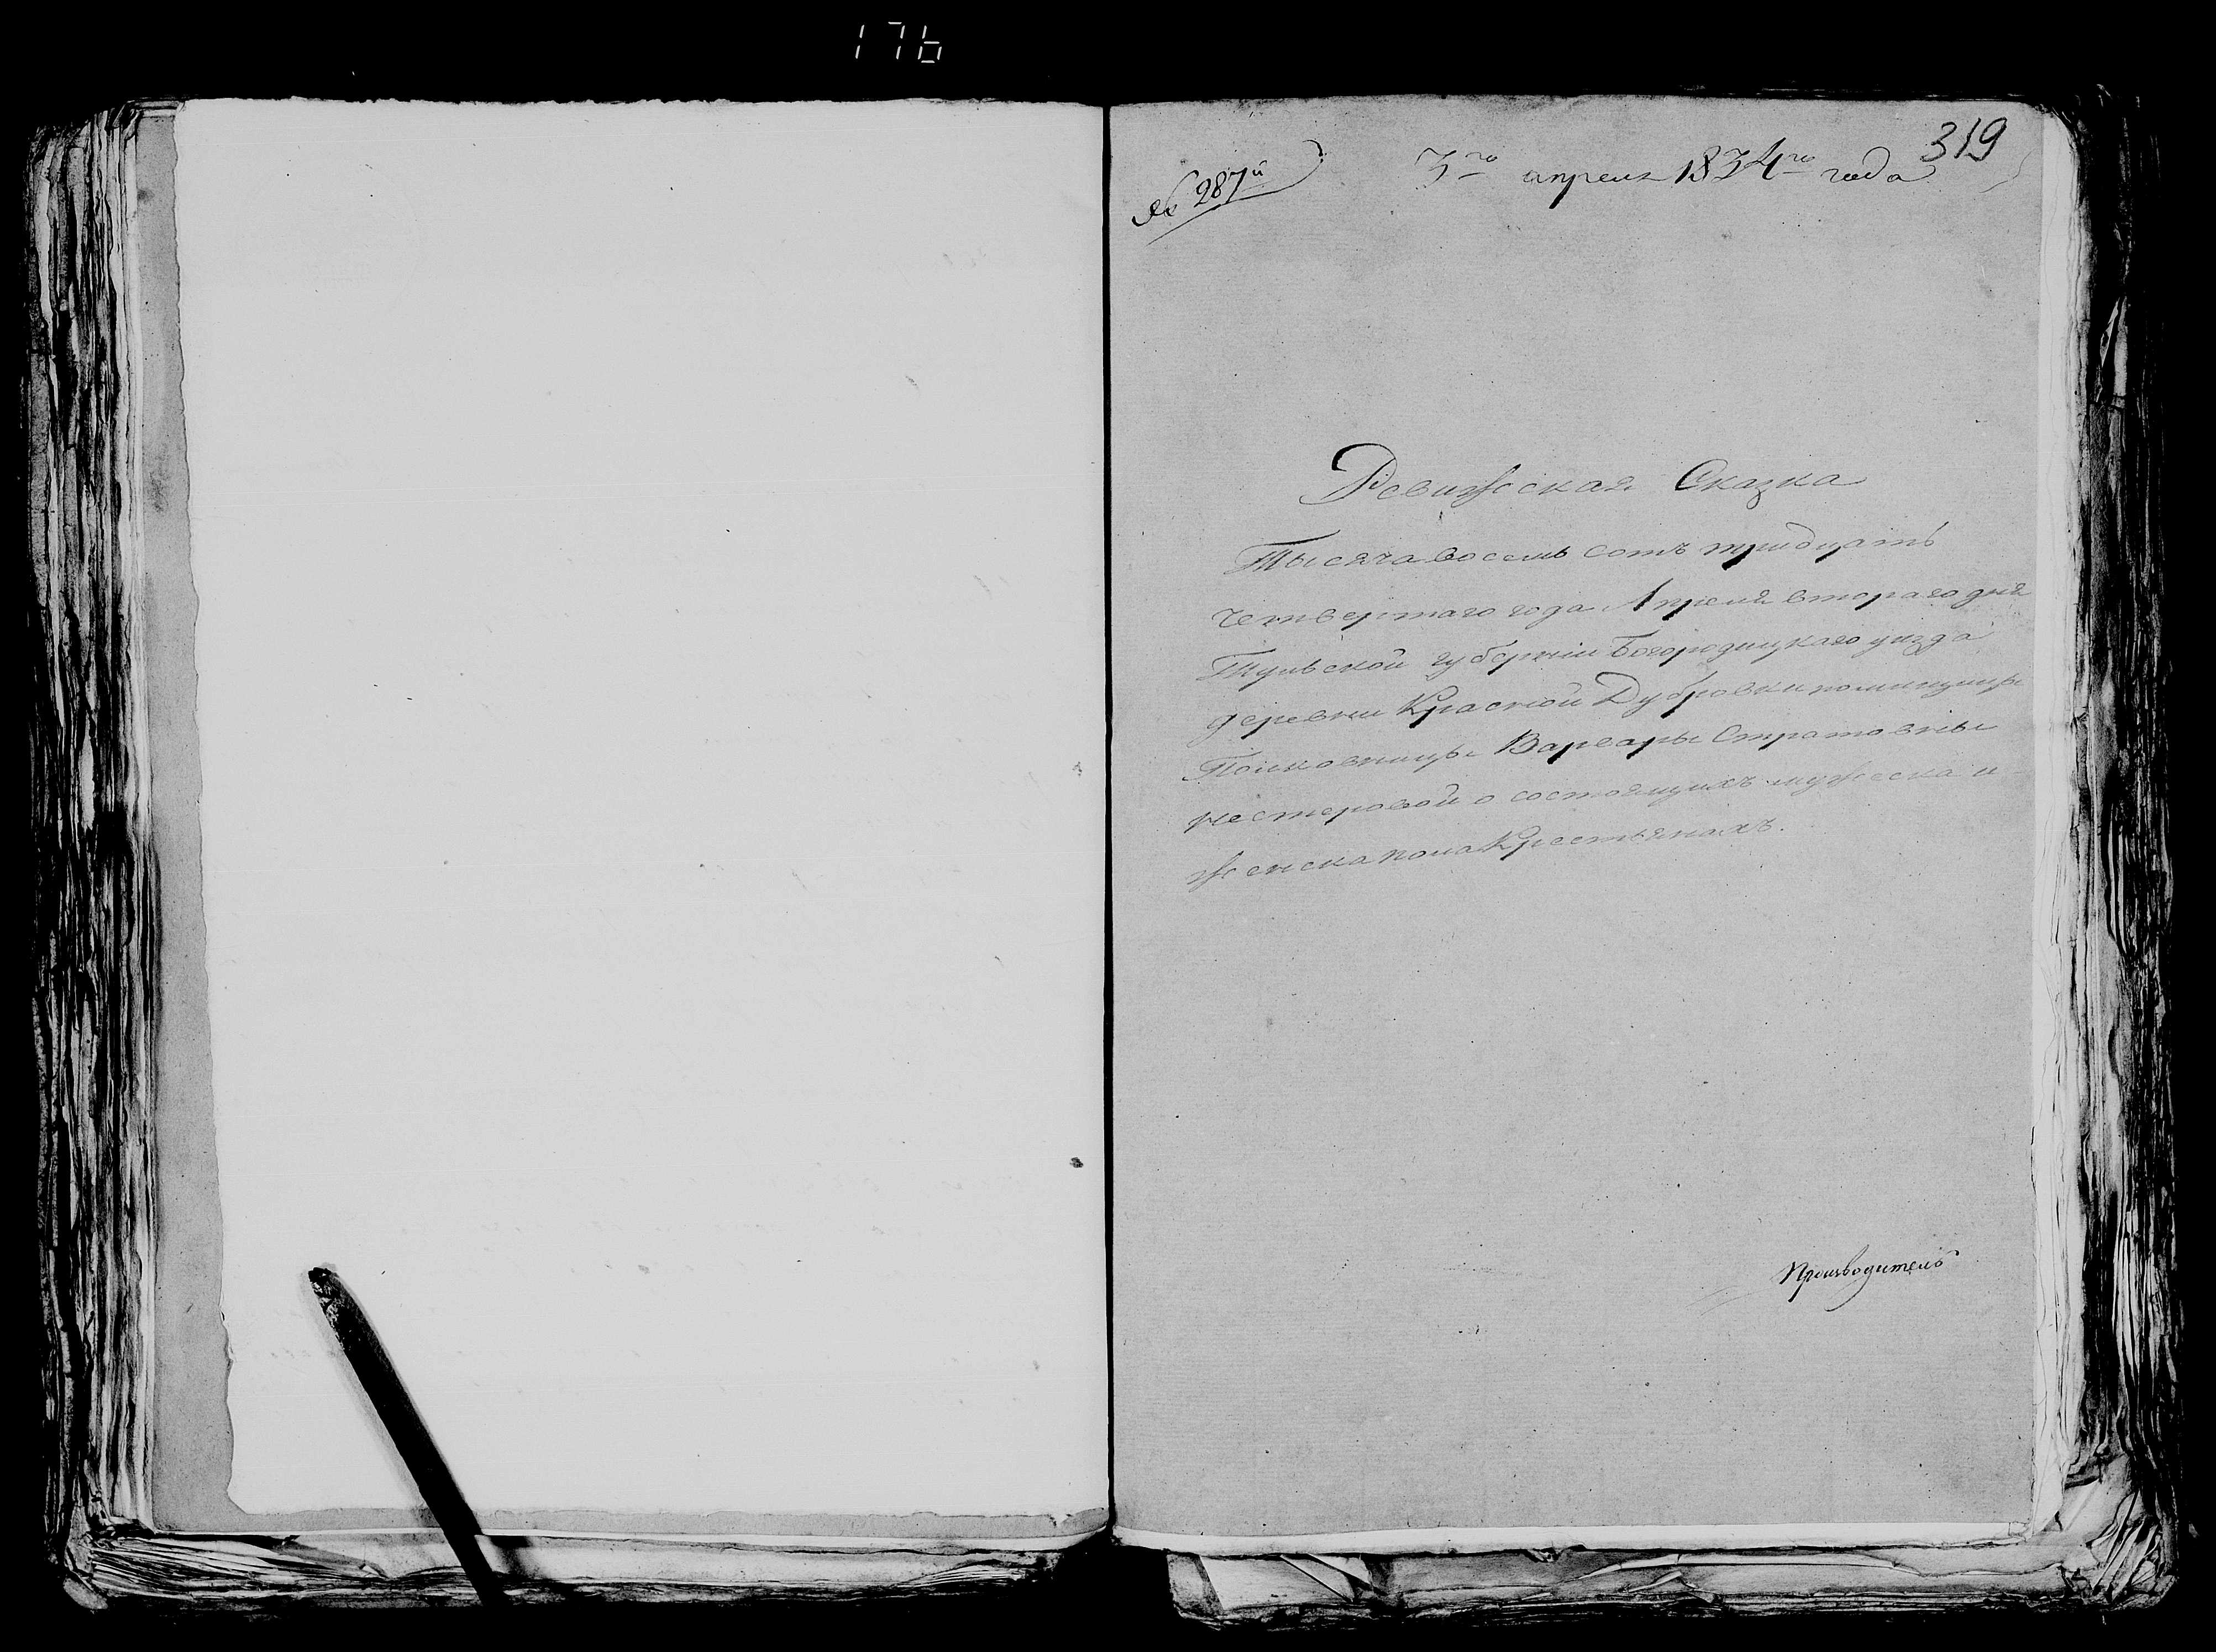 176
319
№ 287й
3го апреля 1834го года
Ревижская Сказка
Тысяча восемь сотъ тридцать
четвертаго года Апреля втораго дня
Тульской губернии Богородицкаго уезда
деревни Красной Дубровки помещицы
Полковницы Варвары
Нестеровой о состоящихъ мужеска и
женска пола Крестьянахъ.
Производитель